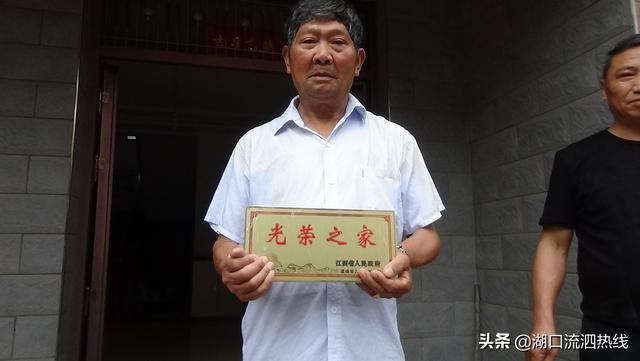 光荣之家
江西省人民政府
头条 @湖口流泗热线